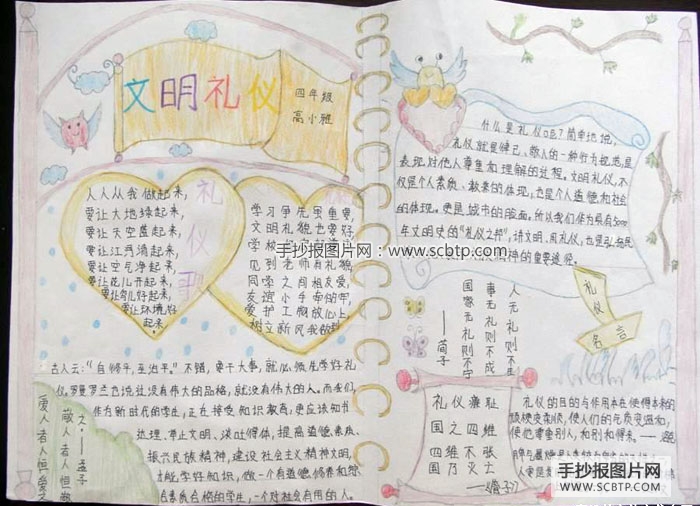 文明礼仪
四年级
高小雅
人人从我做起来,
要让大地绿起来,
要让天空蓝起来,
要让江河清起来,
要让空气净起来,
要让花儿开起来,
要让鸟儿好起来,
要让环境好
起来,
礼
仪
歌
学习争先虽重要,
文明礼貌也要好,
学校
见到老师有礼貌,
同学之间相友爱,
友谊小手牵的牢,
爱护工物放心上,
树立新风我做到
古人云:“自修平,至治平。”不错,要干大事,就必须先学好礼
仪,罗曼罗兰也说过:没有伟大的品格,就没有伟大的人。而我们,
作为新时代的学生,正在接受知识教育,更应该知书
达理、举止文明、谈吐得体,提高道德素质、
振兴民族精神,建设社会主义精神文明,
能学好知识,做一个有道德修养和综
合素质合格的学生,一个对社会有用的人。
爱人者人恒爱之
敬人者人恒敬
之·—孟子
什么是礼仪呢?简单地说,
礼仪就是律己、敬人的一种行为规范,是
表现对他人尊重和理解的过程。文明礼仪,不
仅是个人素质、教养的体现,也是个人道德和社会
的体现。更是城市的脸面,所以我们作为具有5000
年文明史的“礼仪之邦”,讲文明、用礼仪,也是弘扬民
精神的重要途径。
人无礼则不生
事无礼则不成
国家无礼则不宁
——荀子
礼仪
名言
礼仪廉耻
国之四维
四维不张
国乃灭亡
礼仪的目的与作用本在使得本来的
顽梗变柔顺,使人们的气质变温和,
使他尊重别人,和别和得来。
手抄报图片网:www.scbtp.com
手抄报图片网
WWW.SCBTP.COM